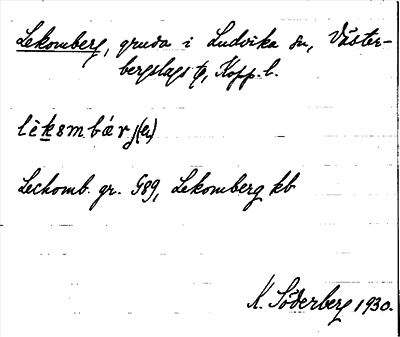 Lekomberg, gruva i Ludvika sn, Väster-
bergslags tg, Kopp. l.
Lechomb. gr. G89, Lekomberg kb
K. Söderberg 1930.